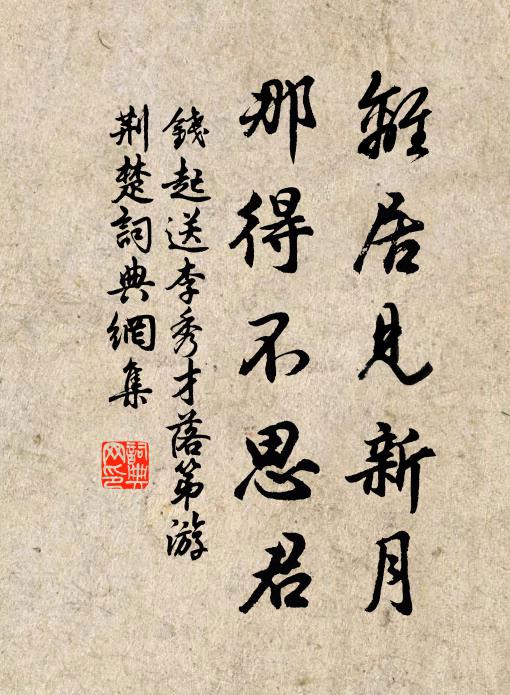 離居見新月
那得不思君
錢起送李秀才落第游
荆楚詞典網集
詞典
网印